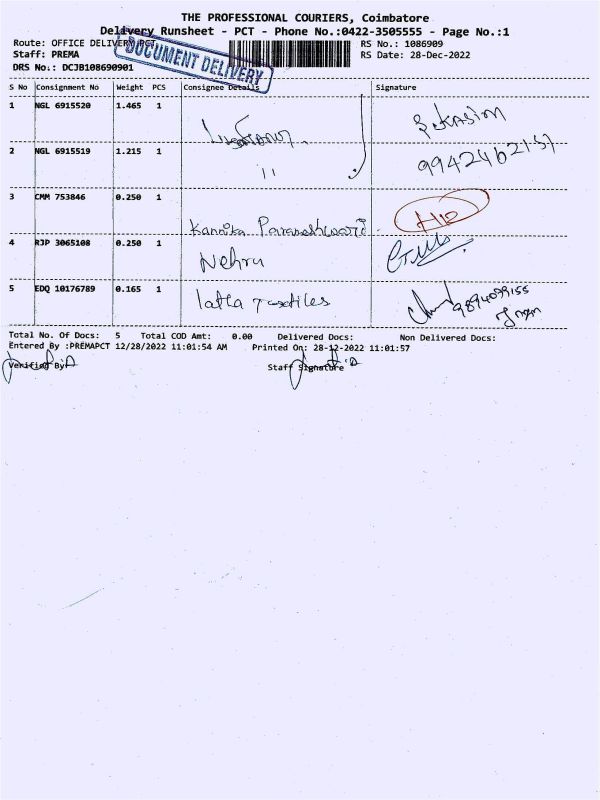 THE PROFESSIONAL COURIERS, Coimbatore
Delivery Runsheet - PCT - Phone No.:0422-3505555 - Page No.:1
Route: OFFICE DELIVERY PCT
RS No.: 1086909
Staff: PREMA
RS Date: 28-Dec-2022
DRS No.: DCJB108690901
DOCUMENT DELIVERY
S No Consignment No Weight PCS Consignee Details Signature
1 NGL 6915520 1.465 1
2 NGL 6915519 1.215 1 11
3 CMM 753846 0.250 1 Kannika Parameshwari
4 RJP 3065108 0.250 1 Nehru
5 EDQ 10176789 0.165 1 latha
Total No. Of Docs: 5 Total COD Amt: 0.00 Delivered Docs: Non Delivered Docs:
Entered By :PREMAPCT 12/28/2022 11:01:54 AM Printed On: 28-12-2022 11:01:57
Verified By
Staff Signature